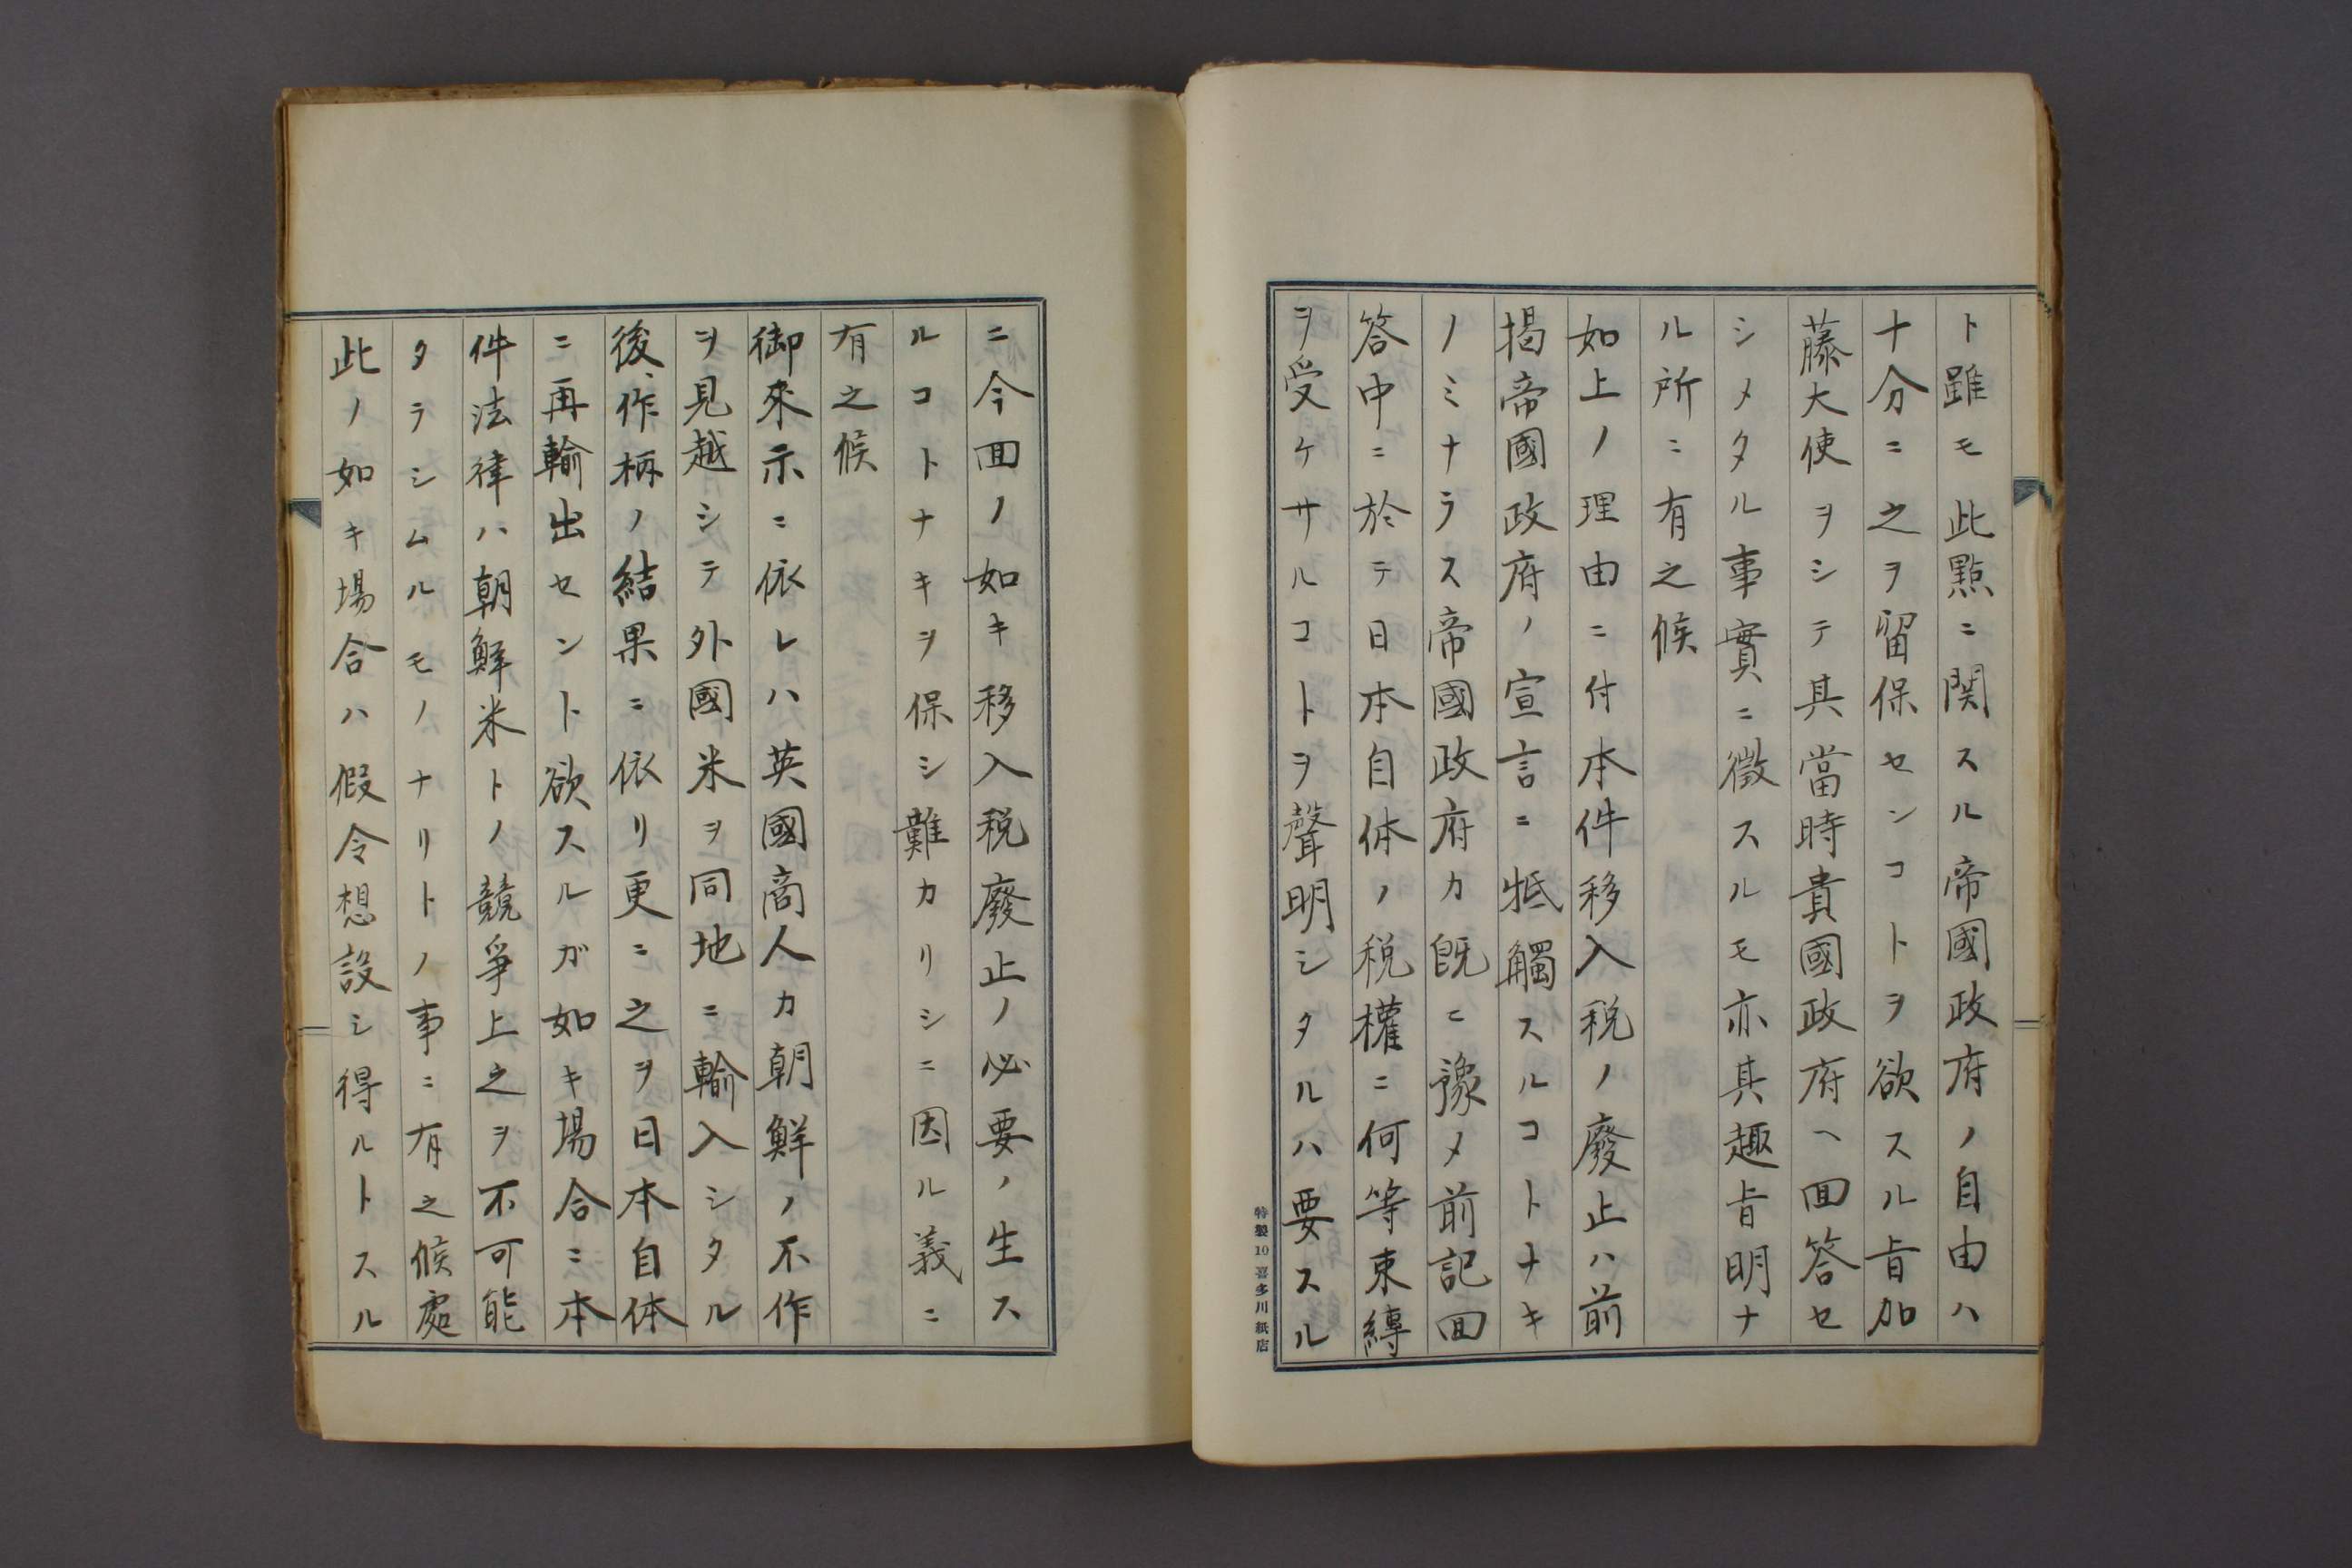 ト雖モ此點ニ関スル帝國政府ノ自由ハ
十分ニ之ヲ留保センコトヲ欲スル旨加
藤大使ヲシテ具當時貴國政府ヘ回答セ
シメタル事實ニ徴スルモ亦其趣旨明ナ
ル所ニ有之候
如上ノ理由ニ付本件移入税ノ廢止ハ前
掲帝國政府ノ宣言ニ牴觸スルコトナキ
ノミナラス帝國政府カ既ニ豫メ前記回
答中ニ於テ日本自体ノ税權ニ何等束縛
ヲ受ケサルコトヲ聲明シタルハ要スル
特製10喜多川紙店
ニ今回ノ如キ移入税廢止ノ必要ノ生ス
ルコトナキヲ保シ難カリシニ因ル義ニ
有之候
御來示ニ依レハ英國商人カ朝鮮ノ不作
ヲ見越シテ外國米ヲ同地ニ輸入シタル
後、作柄ノ結果ニ依リ更ニ之ヲ日本自体
ニ再輸出セント欲スルガ如キ場合ニ本
件法律ハ朝鮮米トノ競爭上之ヲ不可能
タラシムルモノナリトノ事ニ有之候處
此ノ如キ場合ハ假令想設シ得ルトスル